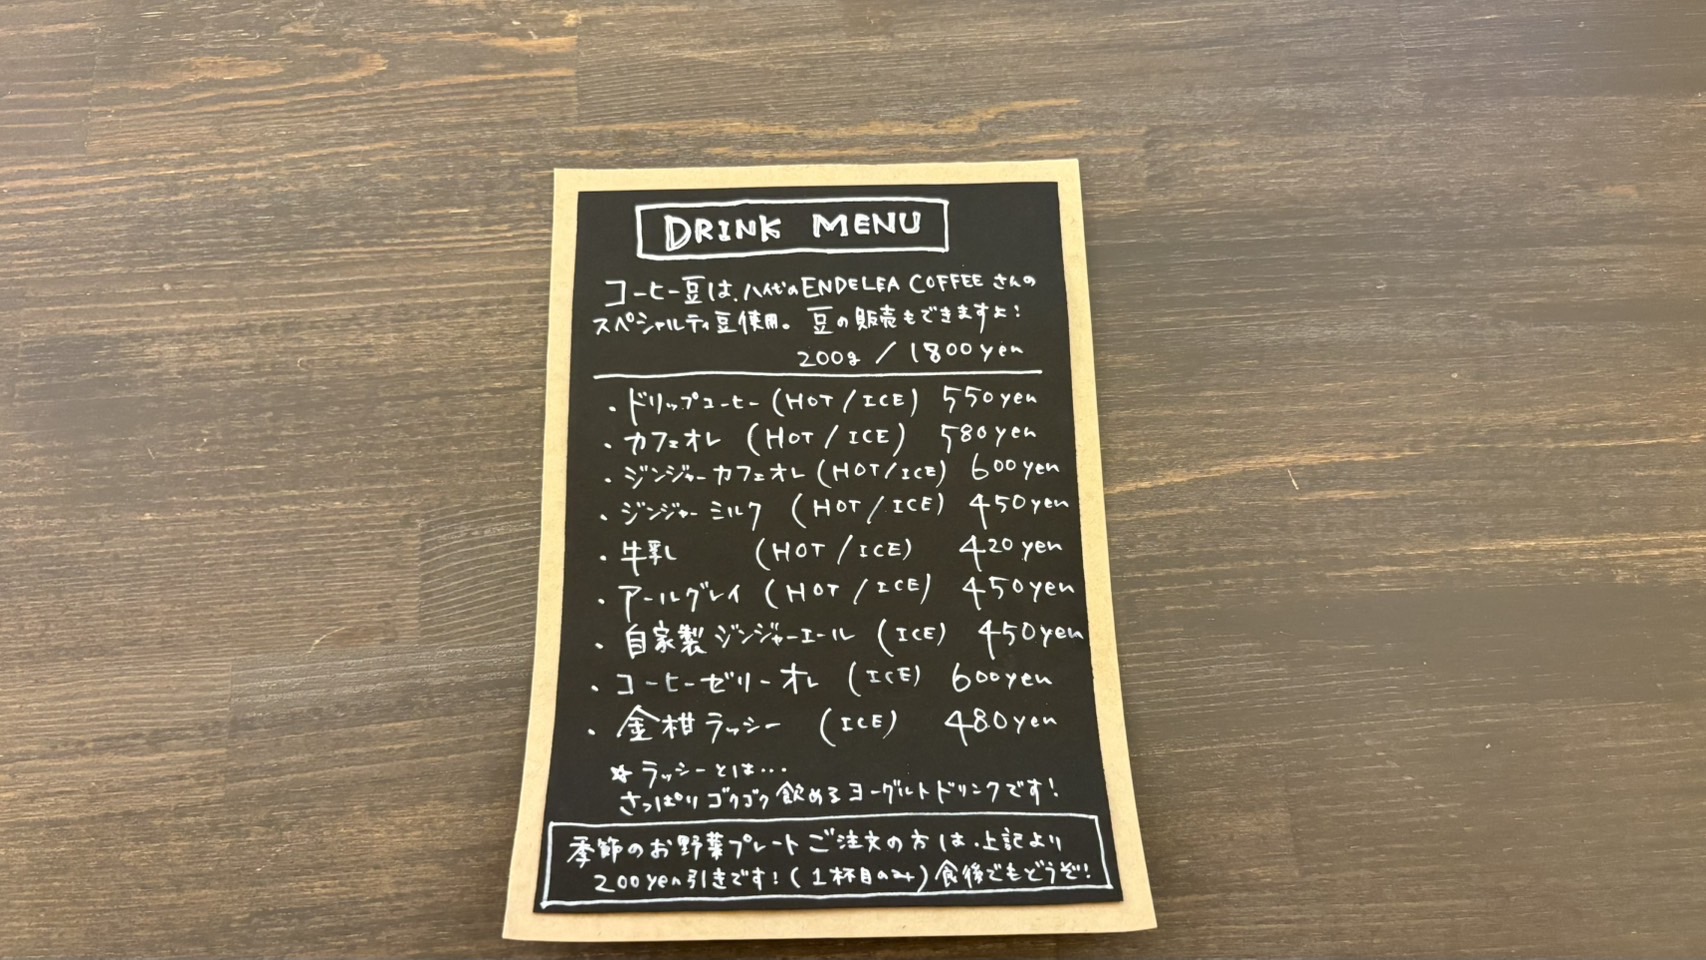 DRINK MENU
コーヒー豆は、ハイビのENDELEA COFFEEさんの
スペシャルティ豆使用。 豆の販売もできますよ!
200g / 1800yen
・ドリップコーヒー (HOT / ICE) 550yen
・カフェオレ (HOT / ICE) 580yen
・ジンジャーカフェオレ (HOT/ICE) 600yen
・ジンジャーミルク (HOT / ICE) 450yen
・牛乳 (HOT / ICE) 420yen
・アールグレイ (HOT / ICE) 450yen
・自家製ジンジャーエール (ICE) 450yen
・コーヒーゼリーオレ (ICE) 600yen
・金柑ラッシー (ICE) 480yen
☆ラッシーとは…
さっぱりゴクゴク飲めるヨーグルトドリンクです!
季節のお野菜プレートご注文の方は、上記より
200yen引きです!(1杯目のみ)食後でもどうぞ!